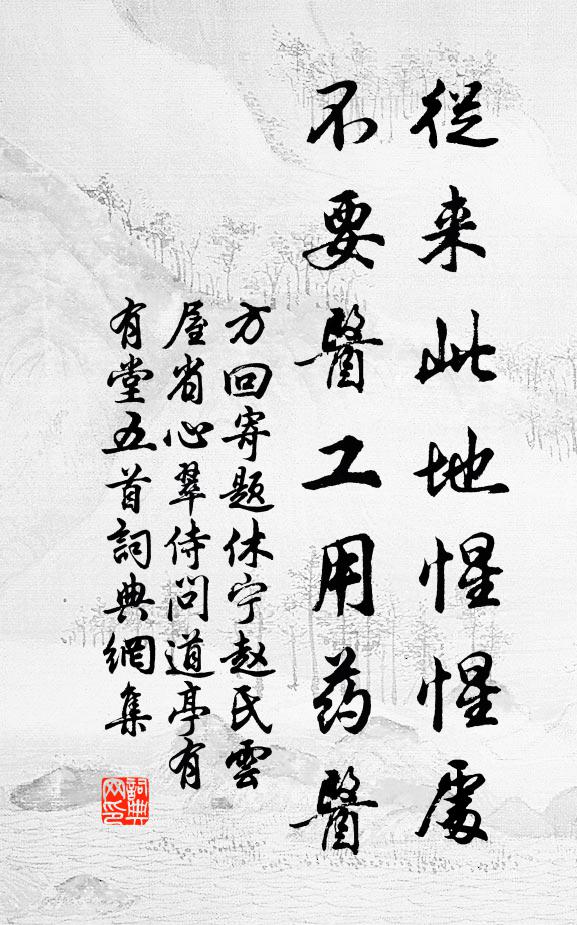 從来此地惺惺處
不要醫工用药醫
方回寄题休宁赵氏雲
屋省心翠侍问道亭有
有堂五首詞典網集
詞典网印